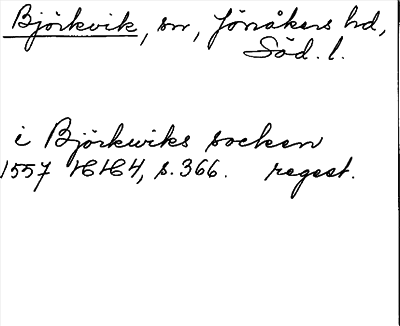 Björkvik, sn, Jönåkers hd,
Söd. l.
i Björkwiks socken
1557 HH4, s. 366. regest.